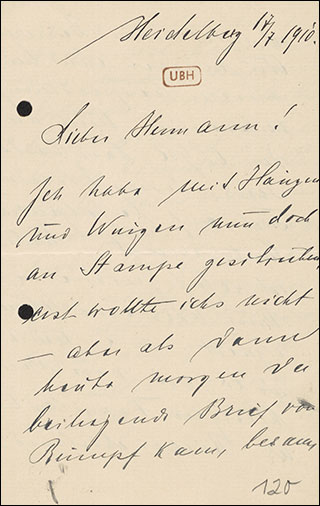 Heidelberg 17/7 1910.
UBH
Lieber Hermann!
Ich habe mit Hängen
und Würgen nun doch
an Stampe geschrieben,
erst wollte ichs nicht
– aber als dann
heute morgen der
beiliegende Brief von
Rümpf kam, bekam
120